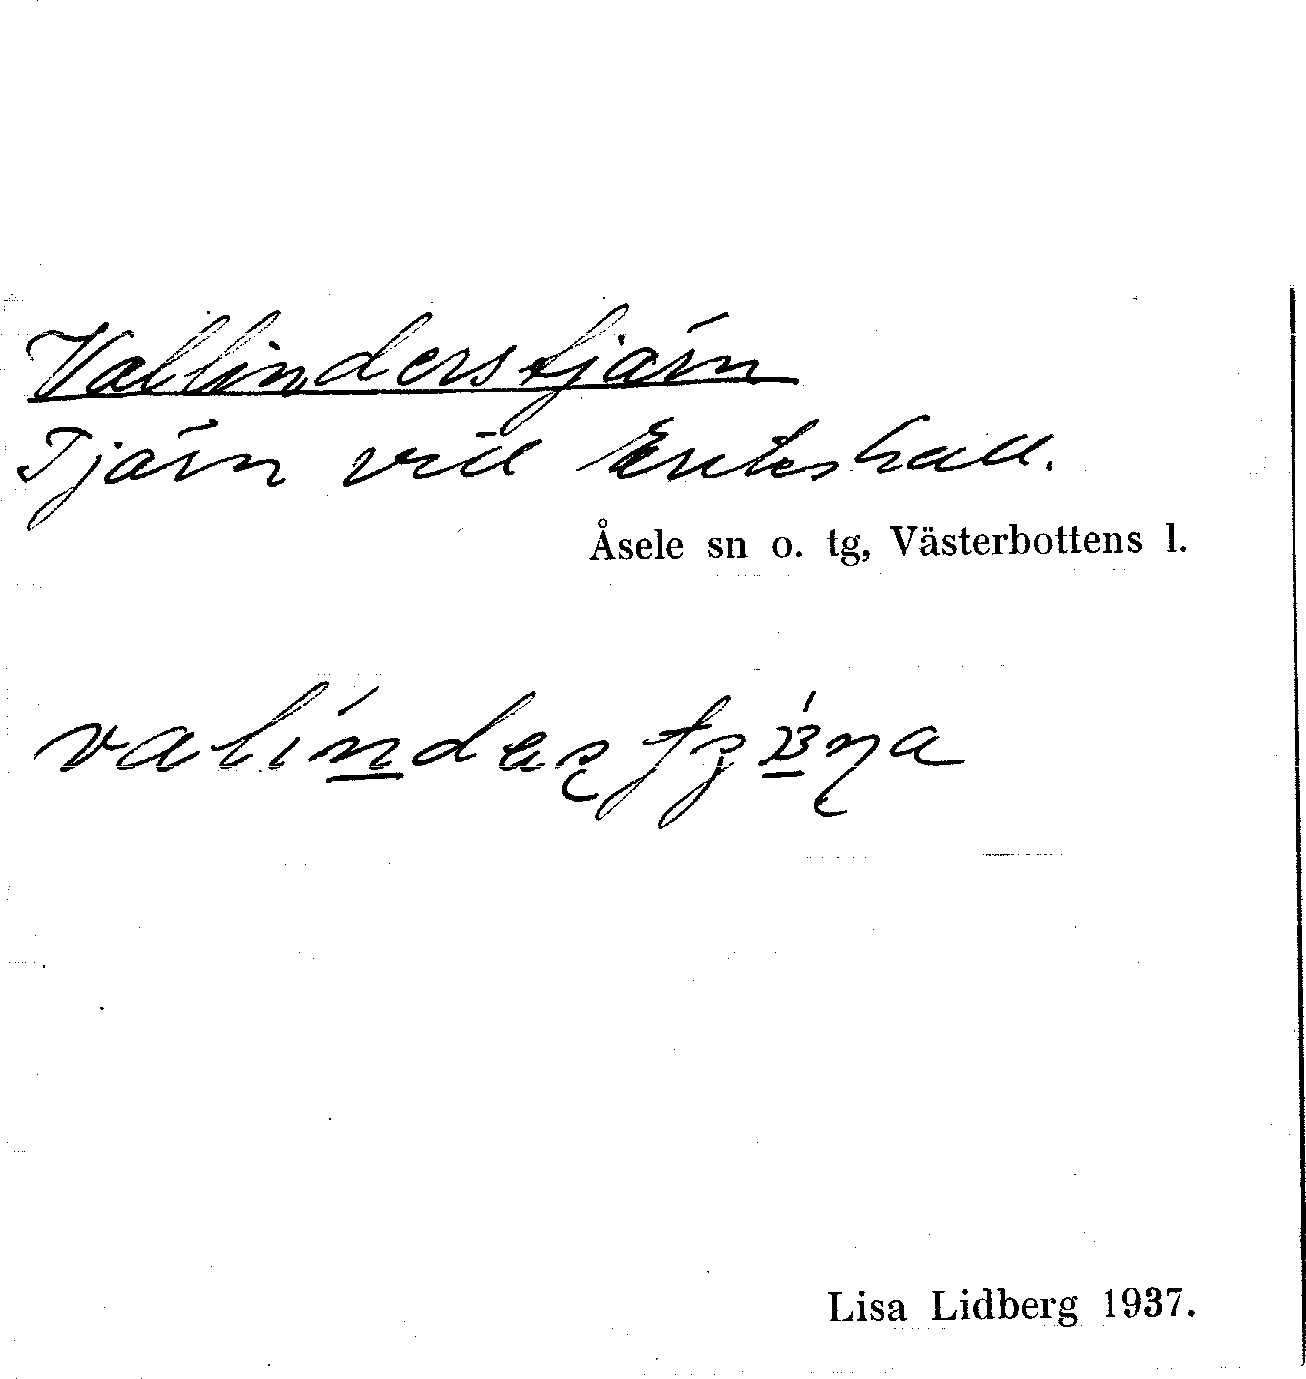 Vallinderstjärn
Tjärn vid
Åsele sn o. tg, Västerbottens l.
Lisa Lidberg 1937.